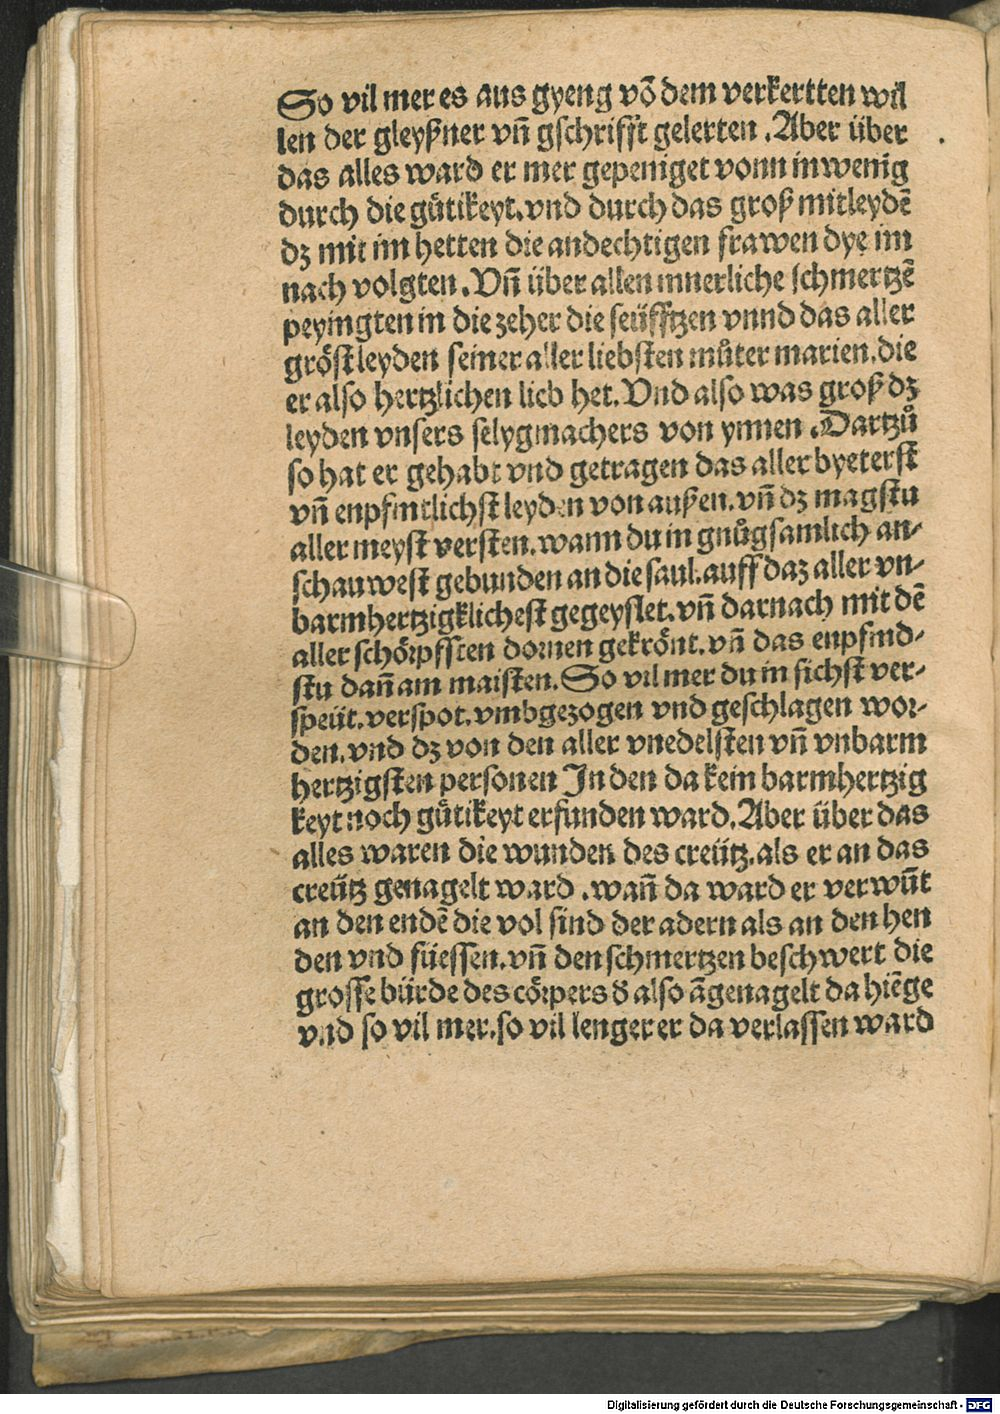 So vil mer es aus gyeng võ dem verkertten wil
len der gleyßner vñ gschrifft gelerten .Aber über
das alles ward er mer gepeniget vonn inwenig
durch die gůtikeyt.vnd durch das groß mitleydẽ
dz mit im hetten die andechtigen frawen dye im
nach volgten.Vñ über allen innerliche schmertzẽ
peyingten in die zeher die seüfftzen vnnd das aller
gröst leyden seiner aller liebsten můter marien.die
er also hertzlichen lieb het.Vnd also was groß dz
leyden vnsers selygmachers von ynnen .Dartzů
so hat er gehabt vnd getragen das aller byeterst
vñ enpfintlichst leyden von außen.vñ dz magstu
aller meyst versten.wann du in gnůgsamlich an-
schauwest gebunden an die saul.auff daz aller vn-
barmhertzigklichest gegeyslet.vñ darnach mit dẽ
aller schörpfsten dornen gekrönt.vñ das enpfind-
stu dañ am maisten.So vil mer du in sichst ver-
speüt.verspot.vmbgezogen vnd geschlagen wor-
den.vnd dz von den aller vnedelsten vñ vnbarm
hertzigsten personen In den da kein barmhertzig
keyt noch gůtikeyt erfunden ward.Aber über das
alles waren die wunden des creütz.als er an das
creütz genagelt ward .wañ da ward er verwũt
an den endẽ die vol sind der adern als an den hen
den vnd füessen.vñ den schmertzen beschwert die
grosse bürde des cörpers d also ãgenagelt da hiẽge
vnd so vil mer.so vil lenger er da verlassen ward
Digitalisierung gefördert durch die Deutsche Forschungsgemeinschaft - DFG